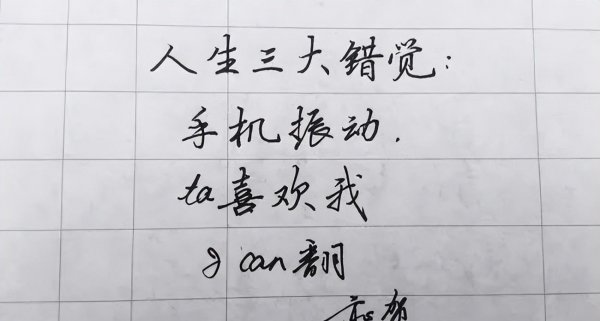 人生三大错觉:
手机振动.
ta喜欢我
I can翻